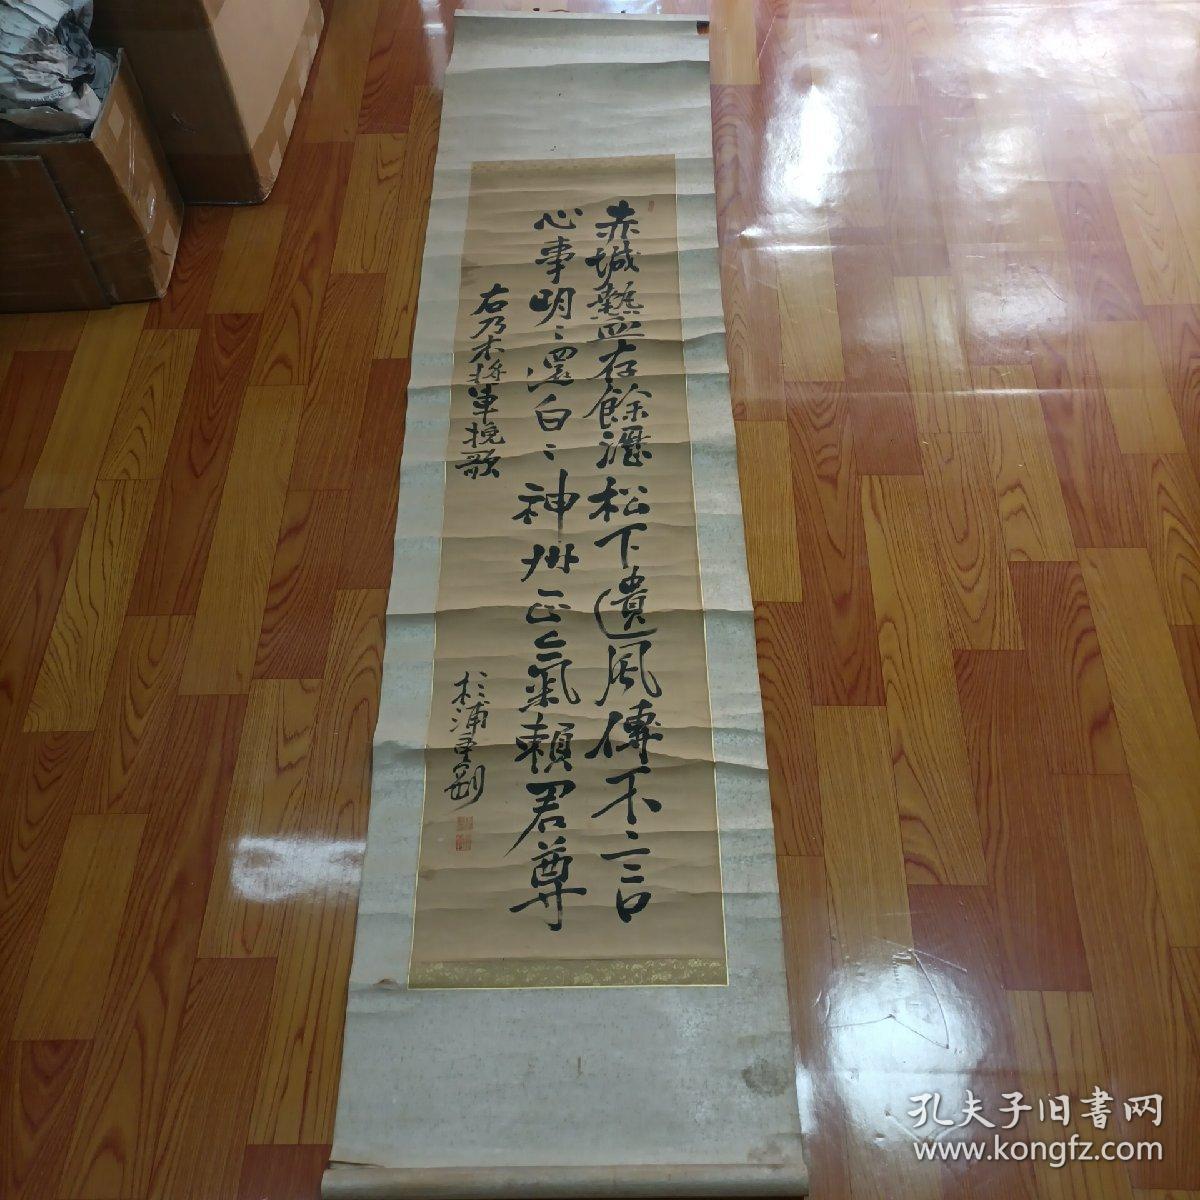 赤城熱血存餘濕松下遺風傳不言
心事明〻還白〻神州正氣賴君尊
右乃木将軍挽歌
杉浦重剛
孔夫子旧書网
www.kongfz.com